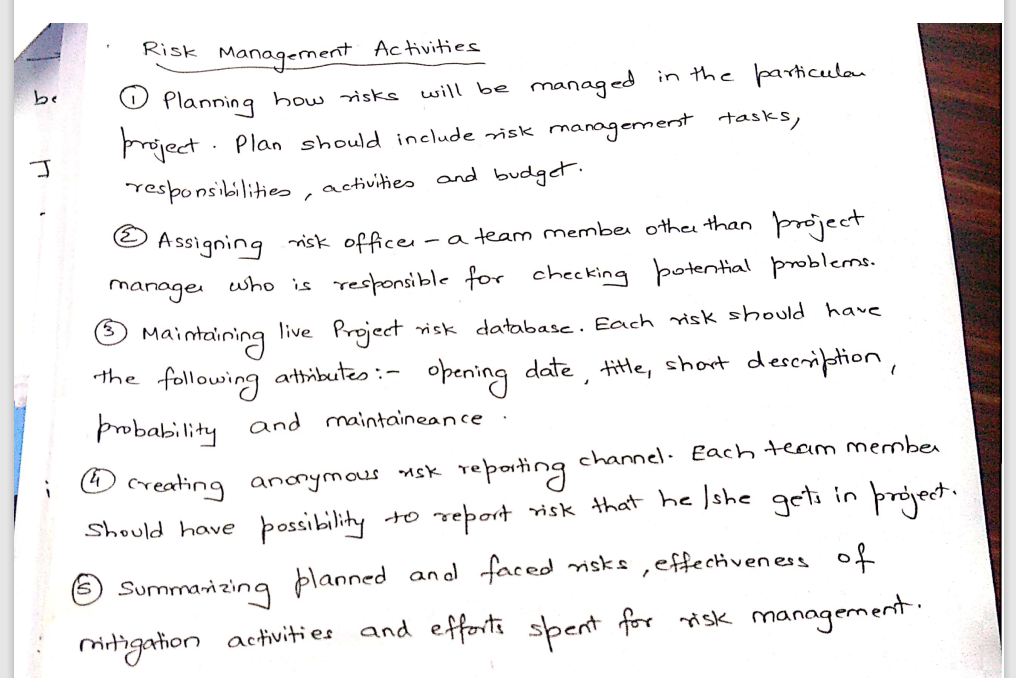 Risk Management Activities
① Planning how risks will be managed in the particular
project. Plan should include risk management tasks,
responsibilities, activities and budget.
② Assigning risk officer - a team member other than project
manager who is responsible for checking potential problems.
③ Maintaining live Project risk database. Each risk should have
the following attributes :- opening date, title, short description,
probability and maintaineance.
④ Creating anonymous risk reporting channel. Each team member
should have possibility to report risk that he/she gets in project.
⑤ Summarizing planned and faced risks, effectiveness of
mitigation activities and efforts spent for risk management.
be